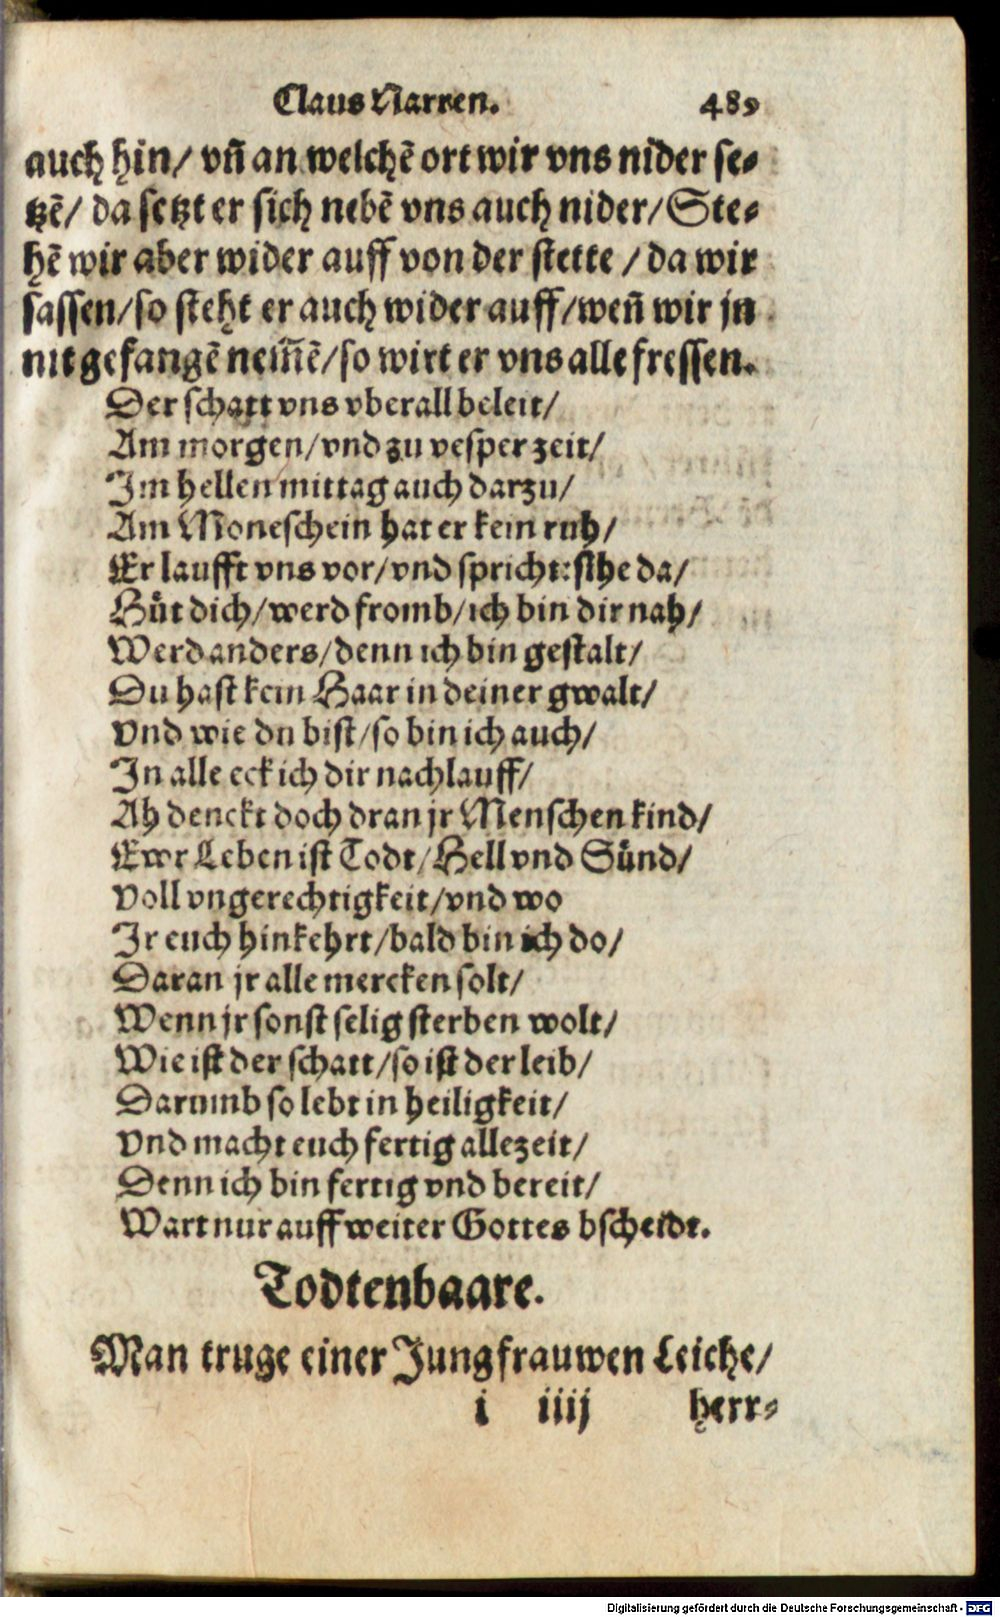 Claus Narren. 489
auch hin/ vñ an welchẽ ort wir vns nider se⸗
tzẽ/ da setzt er sich nebẽ vns auch nider/Ste⸗
hẽ wir aber wider auff von der stette / da wir
sassen/so steht er auch wider auff/weñ wir jn
nit gefangẽ nem̃ẽ/so wirt er vns alle fressen.
Der schatt vns vberall beleit/
Am morgen/vnd zu vesper zeit/
Im hellen mittag auch darzu/
Am Moneschein hat er kein ruh/
Er laufft vns vor/vnd spricht: sihe da/
Hüt dich/werd fromb/ich bin dir nah/
Werd anders/denn ich bin gestalt/
Du hast kein Haar in deiner gwalt/
Vnd wie du bist/so bin ich auch/
In alle eck ich dir nachlauff/
Ah denckt doch dran jr Menschen kind/
Ewr Leben ist Todt/Hell vnd Sünd/
Voll vngerechtigkeit/vnd wo
Ir euch hinkehrt/bald bin ich do/
Daran jr alle mercken solt/
Wenn jr sonst selig sterben wolt/
Wie ist der schatt/so ist der leib/
Darumb so lebt in heiligkeit/
Vnd macht euch fertig allezeit/
Denn ich bin fertig vnd bereit/
Wart nur auff weiter Gottes bscheidt.
Todtenbaare.
Man truge einer Jungfrauwen Leiche/
i iiij herr⸗
Digitalisierung gefördert durch die Deutsche Forschungsgemeinschaft - DFG